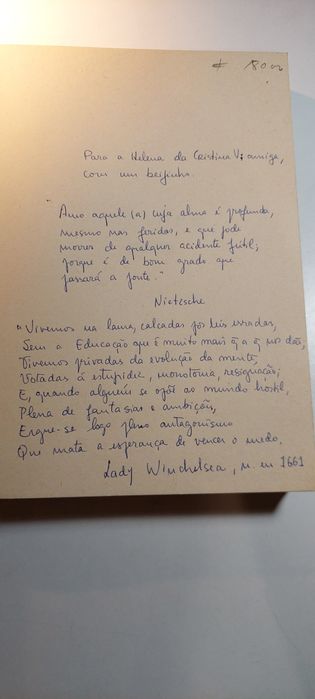 1800
Para a Helena da Cristina V. amiga,
com um beijinho.
"Amo aquele (a) cuja alma é profunda,
mesmo nas feridas, e que pode
morrer de qualquer acidente fútil;
porque é de bom grado que
passará a ponte."
Nietzsche
"Vivemos na lama, calcadas por leis erradas,
Sem a Educação que é muito mais q a q nos dão,
Vivemos privadas da evolução da mente,
Votadas á estupidez, monotonia, resignação;
E, quando alguém se opõe ao mundo hostil,
Plena de fantasias e ambição,
Ergue-se logo pleno antagonismo
Que mata a esperança de vencer o medo.
Lady Winchelsea, n. em 1661